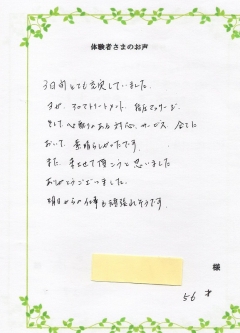 体験者さまのお声
3日間とても充実していました。
ヨガ、アロマトリートメント、宿便マッサージ、
そして心動かすお料理、サービス 全てに
おいて、素晴らしかったです。
また、来させて頂こうと思いました
ありがとうございました。
明日からの仕事も頑張れそうです。
様
56 才